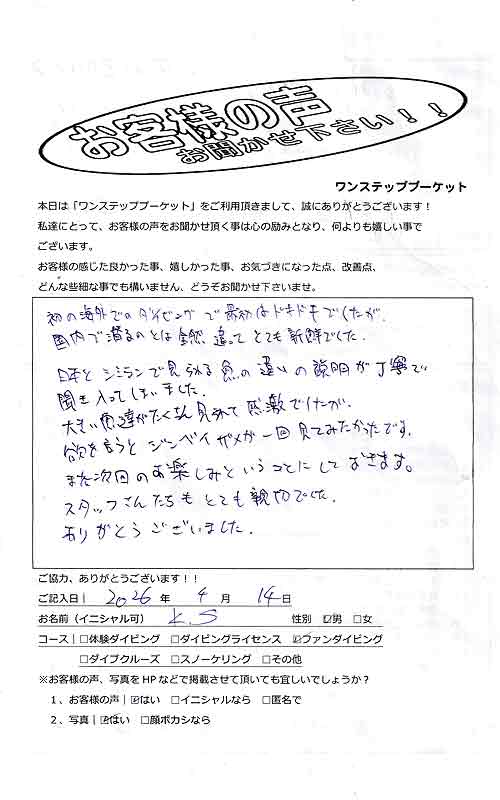 お客様の声
お聞かせ下さい！！
ワンステッププーケット
本日は「ワンステッププーケット」をご利用頂きまして、誠にありがとうございます！
私達にとって、お客様の声をお聞かせ頂く事は心の励みとなり、何よりも嬉しい事で
ございます。
お客様の感じた良かった事、嬉しかった事、お気づきになった点、改善点、
どんな些細な事でも構いません、どうぞお聞かせ下さいませ。
初の海外でのダイビングで最初はドキドキでしたが、
国内で潜るのとは全然違ってとても新鮮でした。
日本とシミランで見られる魚の違いの説明が丁寧で
聞き入ってしまいました。
大きい魚達がたくさん見れて感激でしたが、
欲を言うとジンベイザメが一回見てみたかったです。
また次回のお楽しみということにしておきます。
スタッフさんたちもとても親切でした。
ありがとうございました。
ご協力、ありがとうございます！！
ご記入日｜ 2026 年 4 月 14 日
お名前（イニシャル可） K.S 性別 ☑男 □女
コース｜□体験ダイビング □ダイビングライセンス ☑ファンダイビング
□ダイブクルーズ □スノーケリング □その他
※お客様の声、写真をHPなどで掲載させて頂いても宜しいでしょうか？
1、お客様の声｜☑はい □イニシャルなら □匿名で
2、写真｜☑はい □顔ボカシなら